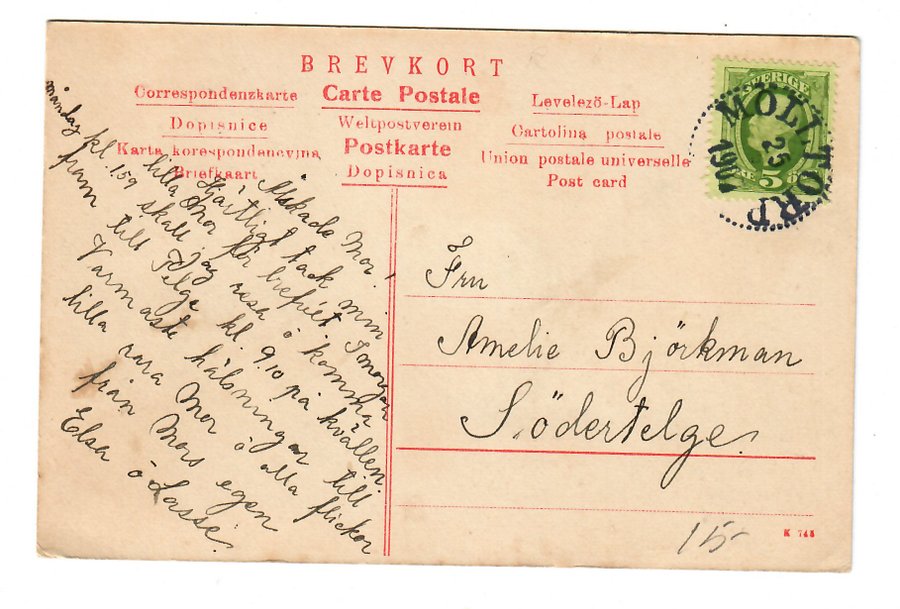 BREVKORT
Correspondenzkarte
Carte Postale
Levelező-Lap
Dopisnice
Weltpostverein
Cartolina postale
Karta korespondencyjna
Postkarte
Union postale universelle
Briefkaart
Dopisnica
Post card
SVERIGE
5
MÖLLTORP
25
190
Älskade Mor!
Hjärtligt tack min
lilla Mor för brefvet. Imorgon
måndag kl. 1.59 skall jag resa ö komma
fram till Telge kl. 9.10 på kvällen.
Varmaste hälsningar till
lilla rara Mor ö alla flickor
från Mors egen
Elsa ö Lasse.
Fru
Amelie Björkman
Södertelge.
15-
K 745